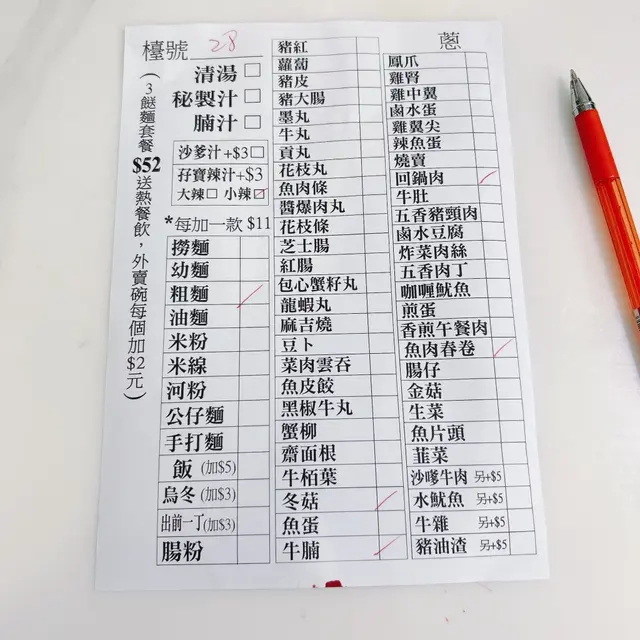 檯號 28
清湯
秘製汁
腩汁
沙爹汁+$3
孖寶辣汁+$3
大辣 小辣
*每加一款 $11
(3餸麵套餐$52送熱餐飲，外賣碗每個加$2元)
撈麵
幼麵
粗麵
油麵
米粉
米線
河粉
公仔麵
手打麵
飯 (加$5)
烏冬 (加$3)
出前一丁(加$3)
腸粉
豬紅
蘿蔔
豬皮
豬大腸
墨丸
牛丸
貢丸
花枝丸
魚肉條
醬爆肉丸
花枝條
芝士腸
紅腸
包心蟹籽丸
龍蝦丸
麻吉燒
豆卜
菜肉雲吞
魚皮餃
黑椒牛丸
蟹柳
齋面根
牛栢葉
冬菇
魚蛋
牛腩
蔥
鳳爪
雞腎
雞中翼
鹵水蛋
雞翼尖
辣魚蛋
燒賣
回鍋肉
牛肚
五香豬頸肉
鹵水豆腐
炸菜肉絲
五香肉丁
咖喱魷魚
煎蛋
香煎午餐肉
魚肉春卷
腸仔
金菇
生菜
魚片頭
韮菜
沙嗲牛肉 另+$5
水魷魚 另+$5
牛雜 另+$5
豬油渣 另+$5